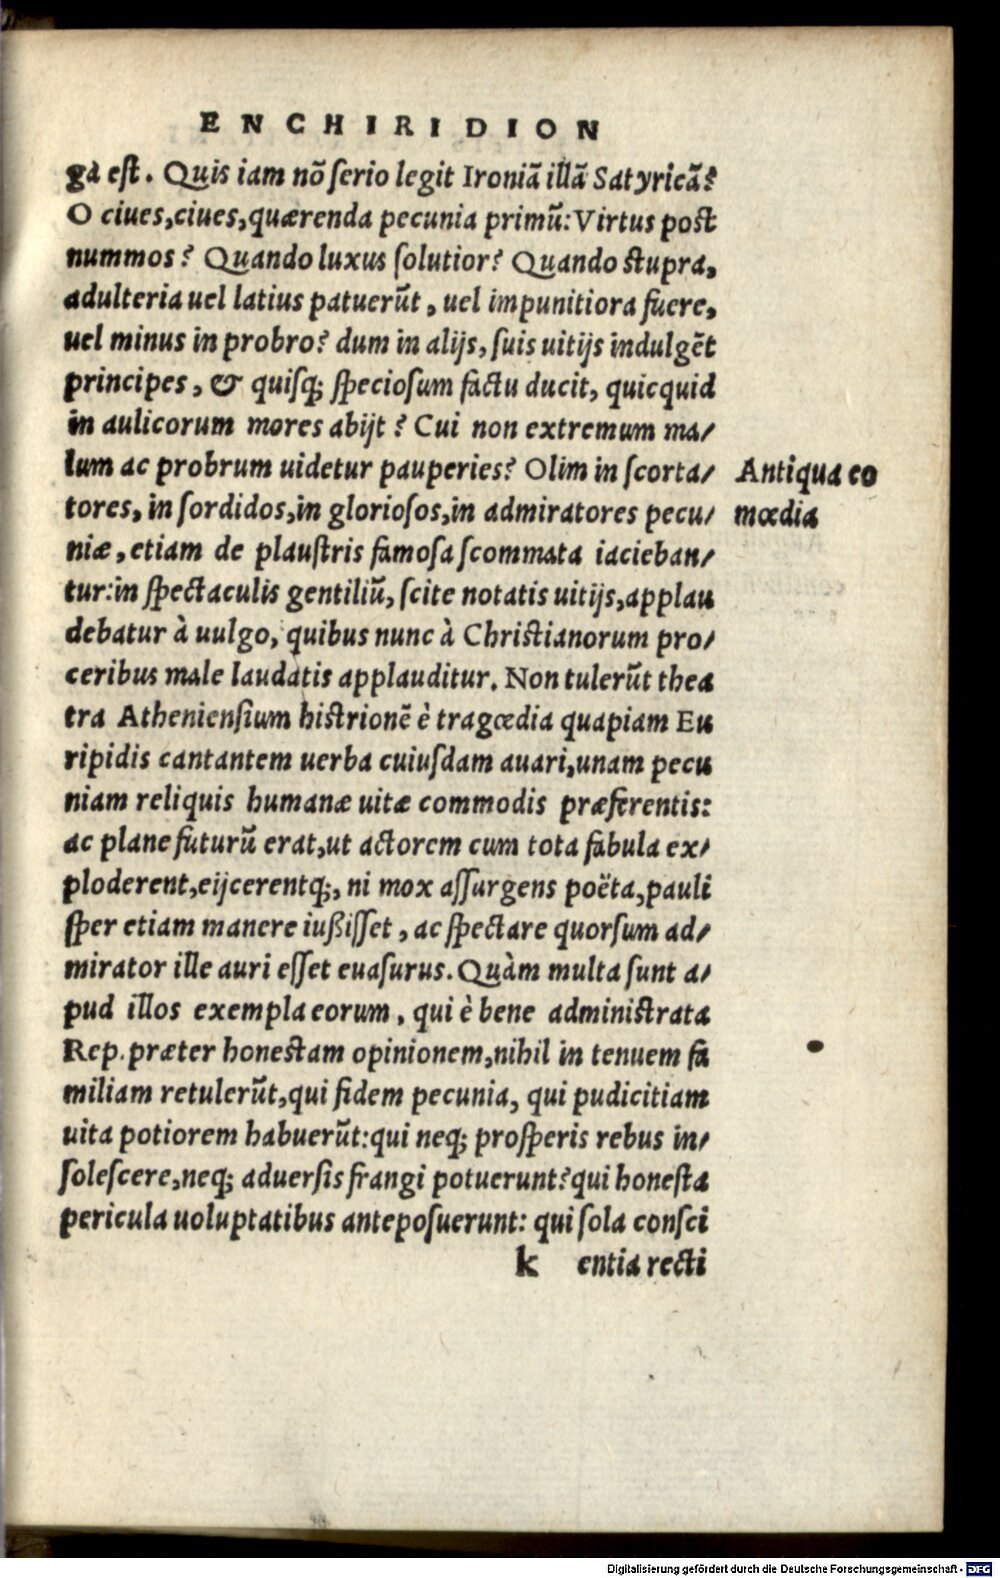 ENCHIRIDION
ga est. Quis iam nō ſerio legit Ironiā illā Satyricā?
O ciues,ciues,quærenda pecunia primū: Virtus post
nummos? Quando luxus ſolutior? Quando ſtupra,
adulteria uel latius patuerūt, uel impunitiora fuere,
uel minus in probro? dum in alijs, ſuis uitijs indulgēt
principes, & quiſq; ſpecioſum factu ducit, quicquid
in aulicorum mores abijt? Cui non extremum ma/
lum ac probrum uidetur pauperies? Olim in ſcorta/
Antiqua co
tores, in ſordidos,in glorioſos,in admiratores pecu/
mœdia
niæ, etiam de plauſtris famoſa ſcommata iacieban/
tur:in ſpectaculis gentiliū, ſcite notatis uitijs,applau
debatur à uulgo, quibus nunc à Chriſtianorum pro/
ceribus male laudatis applauditur. Non tulerūt thea
tra Athenienſium hiſtrionē è tragœdia quapiam Eu
ripidis cantantem uerba cuiuſdam auari,unam pecu
niam reliquis humanæ uitæ commodis præferentis:
ac plane futurū erat,ut actorem cum tota fabula ex/
ploderent,eijcerentq;, ni mox aſſurgens poëta,pauli
ſper etiam manere iußiſſet, ac ſpectare quorſum ad/
mirator ille auri eſſet euaſurus. Quàm multa ſunt a/
pud illos exempla eorum, qui è bene adminiſtrata
Rep. præter honeſtam opinionem,nihil in tenuem fa
miliam retulerūt,qui fidem pecunia, qui pudicitiam
uita potiorem habuerūt:qui neq; proſperis rebus in/
ſoleſcere,neq; aduerſis frangi potuerunt?qui honeſta
pericula uoluptatibus antepoſuerunt: qui ſola conſci
k entia recti
Digitalisierung gefördert durch die Deutsche Forschungsgemeinschaft - DFG